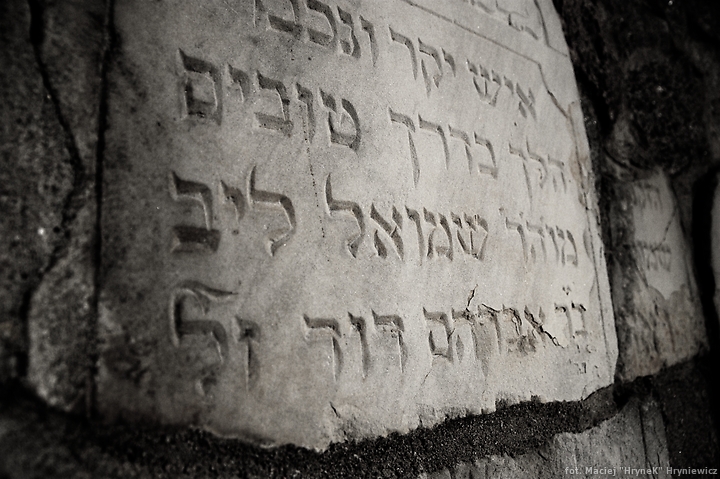 איש יקר ונכבד
הלך בדרך טובים
מוהר שמואל ליב
בר אברהם דוד ז'ל
fot. Maciej "HryneK" Hryniewicz